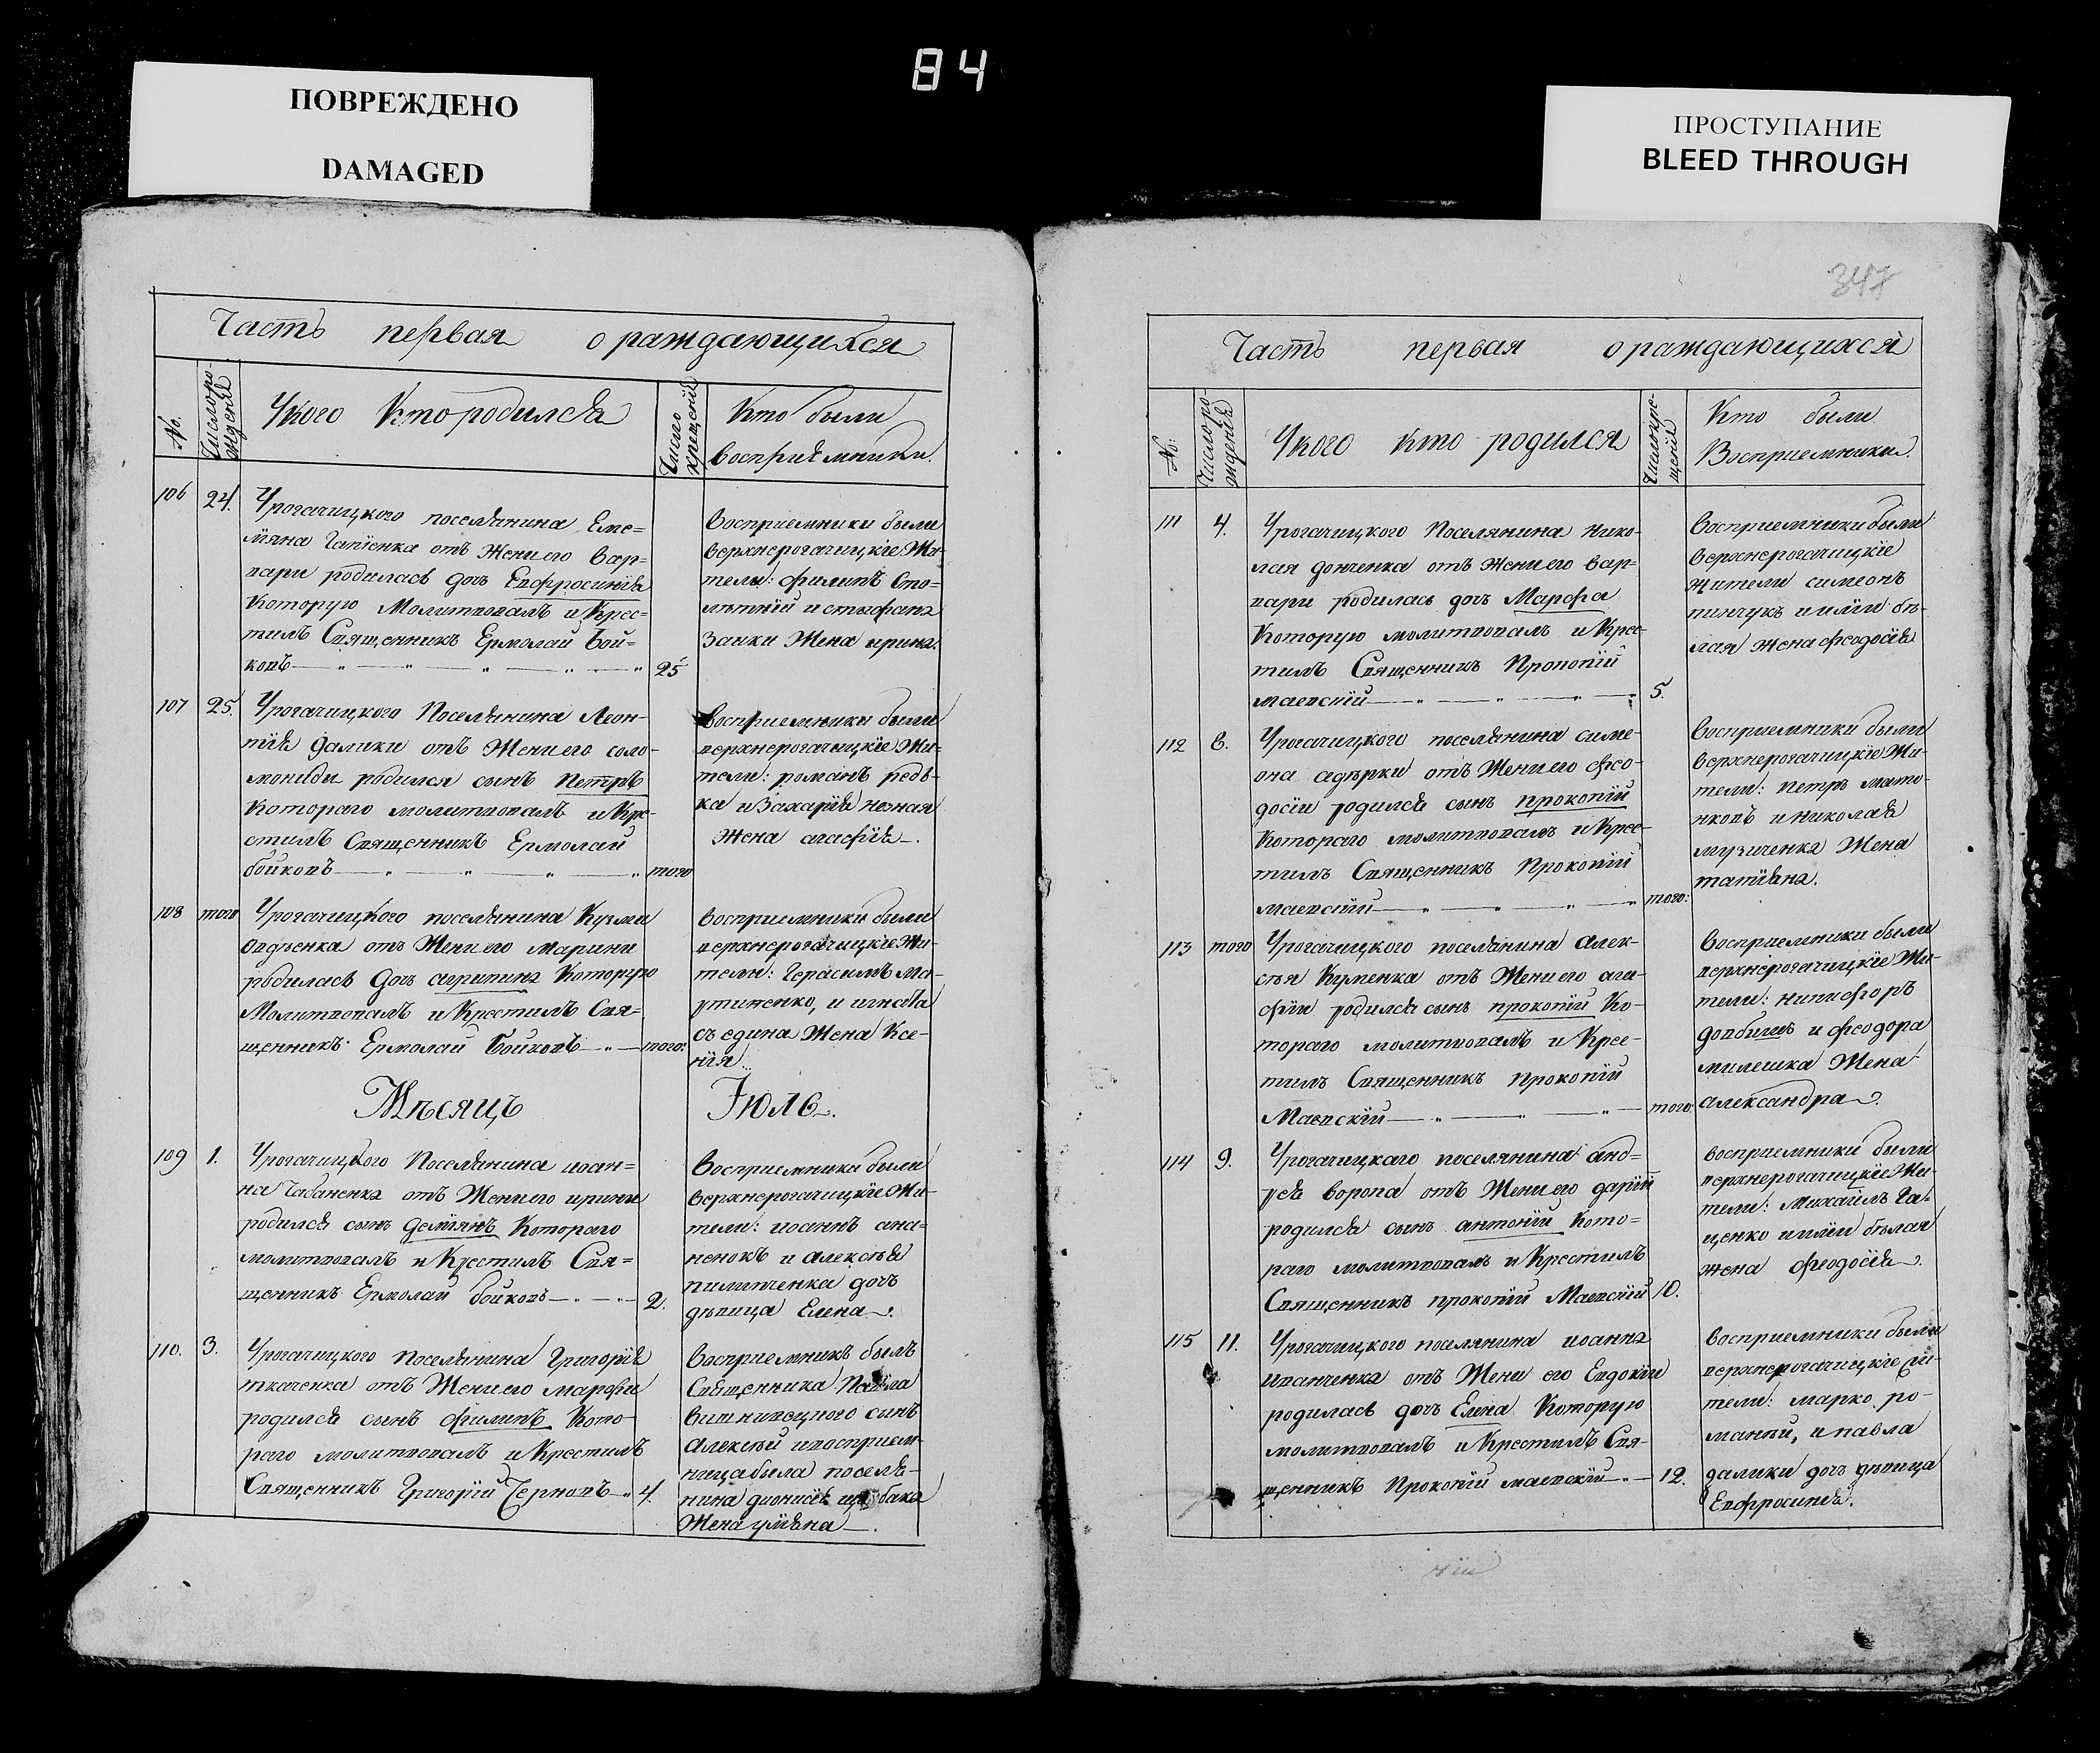 84
ПОВРЕЖДЕНО
DAMAGED
ПРОСТУПАНИЕ
BLEED THROUGH
Часть первая о раждающихся
No.
Число ро-
жденія
Укого Кто родился
Число
крещенія
Кто были
восприемники.
106
24.
Урогачицкого поселянина Еме=
льяна Гапіенка отъ Жени его вар=
вари родилась дочь Евфросинія
Которую Молитвовалъ и Крес=
тилъ Священникъ Ермолай Бой=
ковъ
25
восприемники были
верхнерогачицкіе Жи=
тели: филипъ Сто=
лѣтній и стефана
Заики Жена ирина.
107
25.
Урогачицкого Поселянина Леон-
тія далики отъ Жени его соло-
мониди родился сынъ петръ
Котораго молитвовалъ и Кре-
стилъ Священникъ Ермолай
бойковъ
того
восприемники были
верхнерогачицкіе Жи=
тели: романъ редь-
ка и Захарія
Жена агафія.
108
того
Урогачицкого поселянина Кузми
Овдѣенка отъ Жени его Марини
родилась Дочь агрипина Которую
Молитвовалъ и Крестилъ Свя=
щенникъ Ермолай Бойковъ
того:
восприемники были
верхнерогачицкіе Жи-
тели: Герасимъ Ма-
ртиненко, и
Жена Ксе-
нія
Мѣсяцъ Іюль.
109
1.
Урогачицкого Поселянина иоан=
на Чабаненка отъ Жени его ирини
родился сынъ деміянъ Котораго
молитвовалъ и Крестилъ Свя=
щенникъ Ермолай бойковъ
2.
Восприемники были
верхнерогачицкіе Жи-
тели: иоаннъ ана=
ненокъ и алексѣя
пилипченка дочь
дѣвица Елена.
110.
3.
Урогачицкого Поселянина Григорія
ткаченка отъ Жени его марфи
родился сынъ филипъ Кото-
раго молитвовалъ и Крестилъ
Священникъ Григорій Черновъ
4.
восприемникъ былъ
Священника Павла
вишневецкого сынъ
алексѣй и восприем-
ница была поселя-
нина дионисія
Жена уліяна.
347
Часть первая о раждающихся
No:
Число ро-
жденія
Укого кто родился
Число кре-
щенія
Кто были
Восприемники.
111
4.
Урогачицкого Поселянина нико-
лая донченка отъ Жени его вар=
вари родилась дочь Марфа
Которую молитвовалъ и Крес-
тилъ Священникъ Прокопій
маевскій
5.
восприемники были
верхнерогачицкіе
жители симеонъ
пинчукъ и иліи бѣ-
лая жена феодосія
112
6.
Урогачицкого поселянина симе-
она адѣрки отъ Жени его фео-
досіи родился сынъ прокопій
Котораго молитвовалъ и Крес-
тилъ Священникъ Прокопій
маевскій
того:
восприемники были
верхнерогачицкіе Жи-
тели: петръ мато-
нковъ и николая
музиченка Жена
татіяна.
113
того
Урогачицкого поселянина алек-
сѣя Куменка отъ Жени его ага-
фіи родился сынъ прокопій Ко-
тораго молитвовалъ и Крес-
тилъ Священникъ прокопій
Маевскій
того:
восприемники были
верхнерогачицкіе Жи-
тели: никифоръ
довбишъ и феодора
милешка Жена
александра.
114
9.
Урогачицкаго поселянина анд=
рея ворона отъ Жени его даріи
родился сынъ антоній кото=
раго молитвовалъ и Крестилъ
Священникъ прокопій Маевскій
10.
восприемники были
верхнерогачицкіе Жи-
тели: Михаилъ Га-
ценко и иліи бѣлая
жена феодосія.
115
11.
Урогачицкого поселянина иоанна
иванченка отъ Жени его Евдокіи
родилась дочь Елена Которую
молитвовалъ и Крестилъ Свя-
щенникъ Прокопій маевскій
12.
восприемники были
верхнерогачицкіе жи-
тели: марко ро-
маній, и павла
далики дочь дѣвица
Евфросинія.